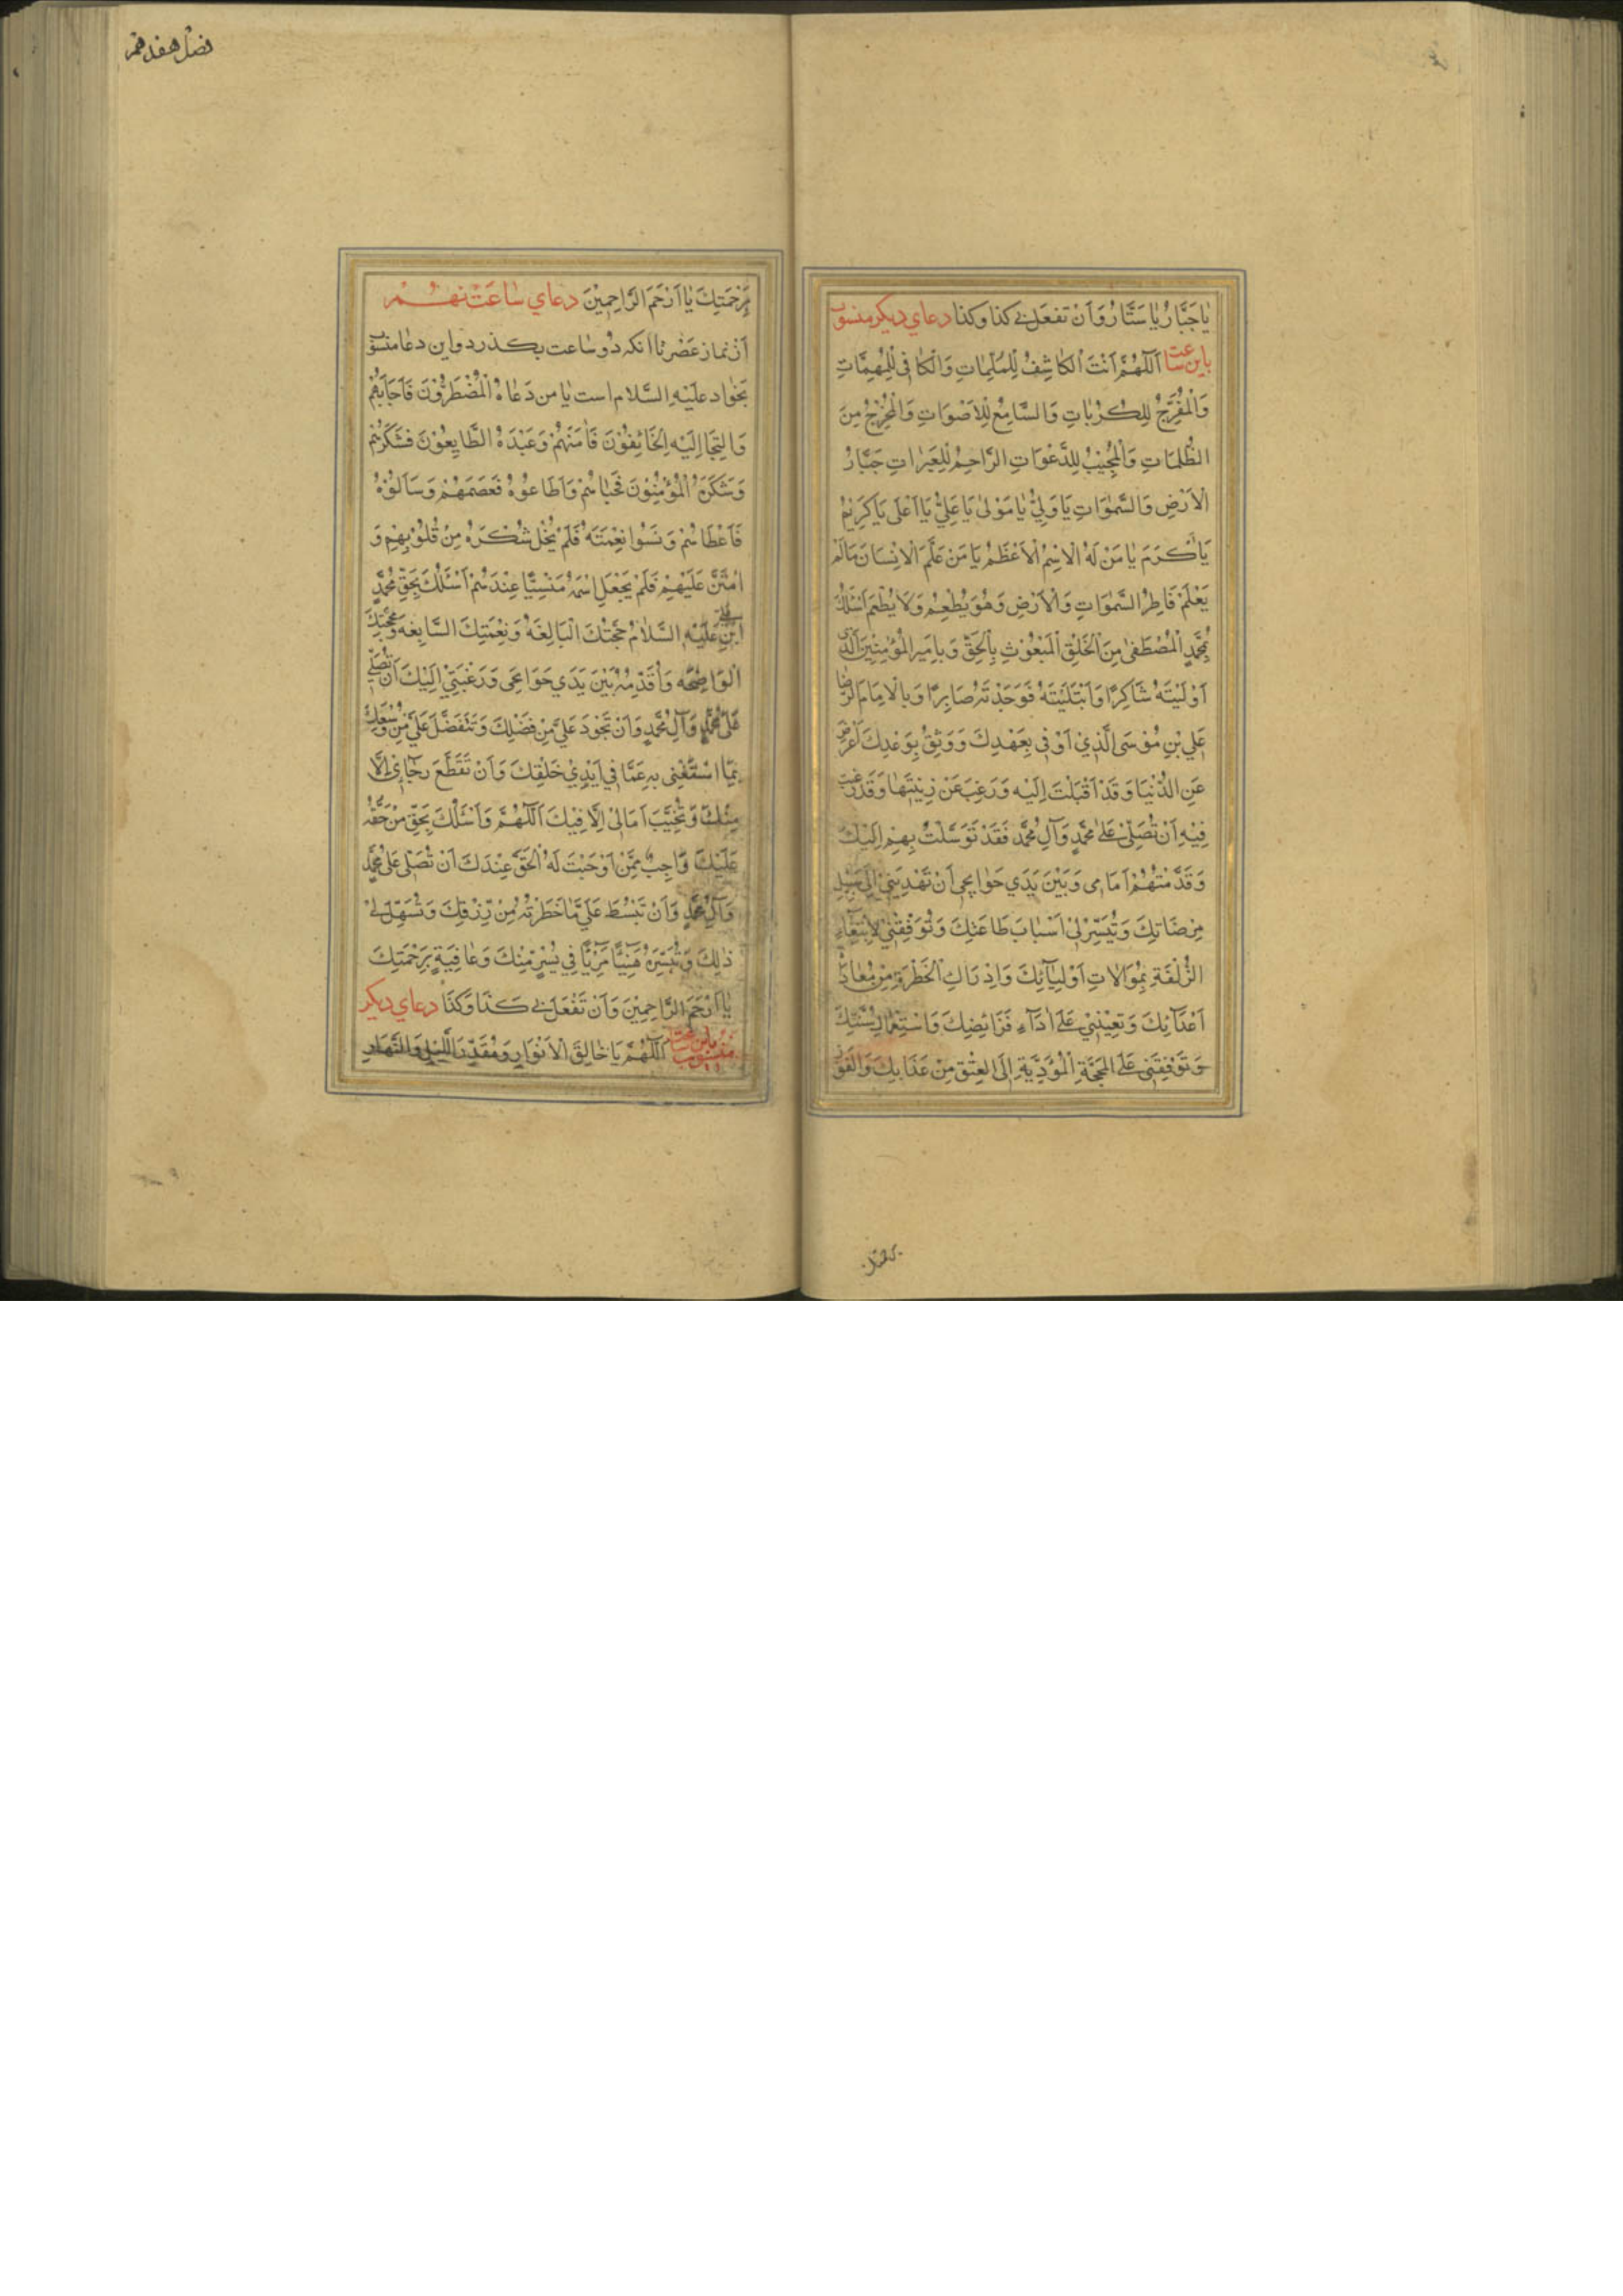 يٰا جَبَّارُ يٰا سَتَّارُ وَاَنْ تَفعَلَ بي كذا وكذا دعاي ديكر منسوب
باين ساعت اَللّٰهُمَّ اَنْتَ الْكٰاشِفُ لِلْمُلِمّٰاتِ وَالْكٰافِي لِلْمُهِمَّاتِ
وَالْمُفَرِّجُ لِلْكُرُبٰاتِ وَالسَّامِعُ لِلْاَصْوَاتِ وَالْمُخْرِجُ مِنَ
الظُّلُمَاتِ وَالْمُجِيْبُ لِلدَّعَوَاتِ الرَّاحِمُ لِلْعَبَرٰاتِ جَبَّارُ
الْاَرْضِ وَالسَّمٰوَاتِ يَا وَلِيُّ يٰا مَوْلىٰ يَا عَلِيُّ يَا اَعْلَى يَا كَرِيْمُ
يَا اَكْرَمَ يٰا مَنْ لَهُ الْاِسْمُ الْاَعْظَمُ يَا مَنْ عَلَّمَ الْاِنْسَانَ مَالَمْ
يَعْلَمْ فَاطِرُ السَّمٰوَاتِ وَالْاَرْضِ وَهُوَ يُطْعِمُ وَلَا يُطْعَمُ اَسْئَلُكَ
بِمُحَمَّدٍ الْمُصْطَفىٰ مِنَ الْخَلْقِ الْمَبْعُوْثِ بِالْحَقِّ وَبِاَمِيرِ الْمُؤْمِنِيْنَ الَّذِي
اَوْلَيْتَهُ شَاكِرًا وَاَبْتَلَيْتَهُ فَوَجَدْتَهُ صَابِرًا وَبِالْاِمَامِ الرِّضَا
عَلِي بْنِ مُوْسَى الَّذِيْ اَوْفى بِعَهْدِكَ وَوَثِقَ بِوَعْدِكَ وَاَعْرَضَ
عَنِ الدُّنْيَا وَقَدْ اَقْبَلَتْ اِلَيْهِ وَرَغِبَ عَنْ زِيْنَتِهٰا وَقَدْ رَغِبَتْ
فِيْهِ اَنْ تُصَلِّيَ عَلىٰ مُحَمَّدٍ وَآلِ مُحَمَّدٍ فَقَدْ تَوَسَّلْتُ بِهِمْ اِلَيْكَ
وَقَدَّمْتُهُمْ اَمَامِى وَبَيْنَ يَدَي حَوٰايِجِى اَنْ تَهْدِيَنِيْ اِلىٰ سَبِيْلِ
مَرْضَاتِكَ وَتُيَسِّرَ لِيْ اَسْبَابَ طَاعَتِكَ وَتُوَفِّقَنِيْ لِابْتِغَاءِ
الزُّلْفَةِ بِمُوَالَاتِ اَوْلِيٰآئِكَ وَاِدْرٰاكِ الْحَظْوَةِ مِنْ مُعٰادَاةِ
اَعْدَآئِكَ وَتُعِيْنَنِيْ عَلىٰ اَدَآءِ فَرَائِضِكَ وَاسْتِعْمَالِ سُنَّتِكَ
وَتُوْقِفَنِى عَلَى الْمَحَجَّةِ الْمُؤَدِّيَةِ اِلَى الْعِتْقِ مِنْ عَذَابِكَ وَالْفَوْزِ
فصل هفدهم
بِرَحْمَتِكَ يٰا اَرْحَمَ الرَّاحِمِيْنَ دعاي ساعت نهم
اَز نماز عَصْر تا انكه دو ساعت بكذرد واين دعا منسوب
بجواد عَلَيْهِ السَّلام است يٰا من دَعٰاهُ الْمُضْطَرُّوْنَ فَاَجَابَهُمْ
وَالتجَا اِلَيْهِ الْخَائِفُوْنَ فَاٰمَنَهُمْ وَعَبَدَهُ الطَّايِعُوْنَ فَشَكَرَهُمْ
وَشَكَرَهُ الْمُؤْمِنُوْنَ فَحَبٰاهُمْ وَاَطَاعُوْهُ فَعَصَمَهُمْ وَسَاَلُوْهُ
فَاَعْطَاهُمْ وَنَسُوا نِعْمَتَهُ فَلَمْ يُخْلِ شُكْرَهُ مِنْ قُلُوْبِهِمْ وَ
امْتَنَّ عَلَيْهِمْ فَلَمْ يَجْعَلِ اسْمَهُ مَنْسِيًّا عِنْدَهُمْ اَسْئَلُكَ بِحَقِّ مُحَمَّدِ
ابْنِ علي عَلَيْهِ السَّلٰامُ حُجَّتِكَ الْبَالِغَةُ وَنِعْمَتِكَ السَّابِغَه وَمَحَجَّتِكَ
الْوَاضِحَه وَاُقَدِّمُهُ بَيْنَ يَدَي حَوَايجِى وَرَغْبَتِيْ اِلَيْكَ اَنْ تُصَلِّيَ
عَلىٰ مُحَمَّدٍ وَآلِ مُحَمَّدٍ وَاَنْ تَجُوْدَ عَلَيَّ مِنْ فَضْلِكَ وَتَتَفَضَّلَ عَلَيَّ مِنْ وُسْعِكَ
بِمَا اسْتَغْنِى بِهِ عَمَّا فِي اَيْدِيْ خَلْقِكَ وَاَنْ تَقْطَعَ رَجَائِيْ اِلَّا
مِنْكَ وَتُخَيِّبَ اٰمَالِيْ اِلَّا فِيْكَ اَللّٰهُمَّ وَاَسْئَلُكَ بِحَقِّ مَنْ حَقُّهُ
عَلَيْكَ وَاجِبٌ مِمَّنْ اَوْجَبْتَ لَهُ الْحَقَّ عِنْدَكَ اَنْ تُصَلِّيَ عَلىٰ مُحَمَّدٍ
وَآلِ مُحَمَّدٍ وَاَنْ تَبْسُطَ عَلَيَّ مَا حَظَرْتَهُ مِنْ رِزْقِكَ وَتُسَهِّلَ لِيْ
ذٰلِكَ وَتُيَسِّرَهُ هَنِيْئًا مَرِيْئًا فِي يُسْرٍ مِنْكَ وَعٰافِيَةٍ بِرَحْمَتِكَ
يٰا اَرْحَمَ الرَّاحِمِيْنَ وَاَنْ تَفْعَلَ بِي كَذَا وَكَذَا دعاي ديكر
منسوب باين ساعت اَللّٰهُمَّ يَا خٰالِقَ الْاَنْوَارِ وَمُقَدِّرَ اللَّيْلِ وَالنَّهَارِ